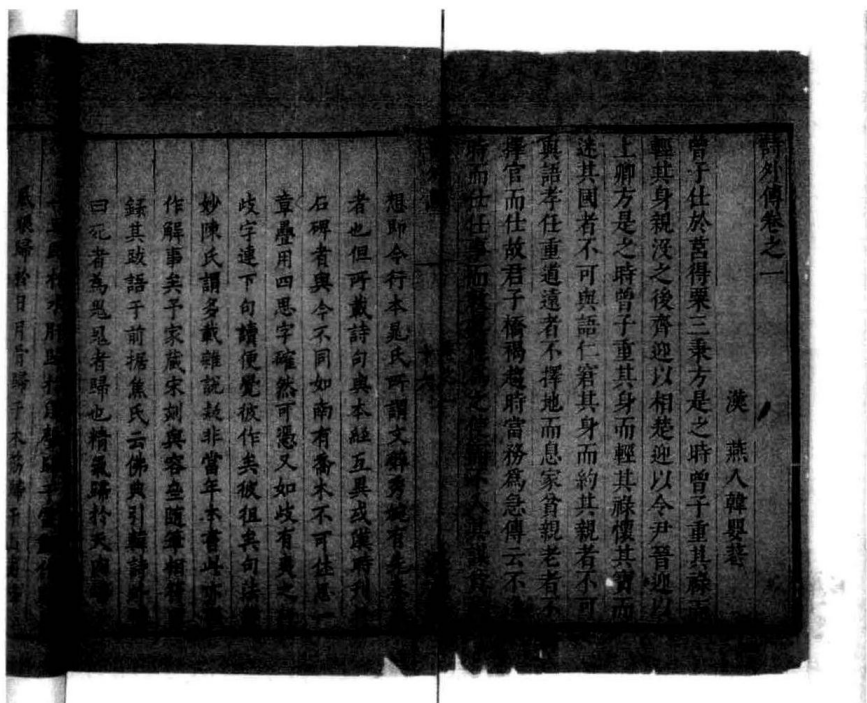 詩外傳卷之一
漢 燕人韓嬰著
曾子仕於莒得粟三秉方是之時曾子重其祿而
輕其身親沒之後齊迎以相楚迎以令尹晉迎以
上卿方是之時曾子重其身而輕其祿懷其寶而
迷其國者不可與語仁窘其身而約其親者不可
與語孝任重道遠者不擇地而息家貧親老者不
擇官而仕故君子橋褐趨時當務為急傳云不
時而仕任事而
想即今行本晁氏所謂文辭秀婉有先
者也但所載詩句與本經互異或漢時刊
石碑者與今不同如南有喬木不可休息一
章疊用四思字確然可憑又如歧有夷之
歧字連下句讀便覺彼作矣彼徂矣句法
妙陳氏謂多載雜說疑非當年本書此亦
作解事矣予家藏宋刻與容齋隨筆相符
錄其跋語于前据焦氏云佛典引韓詩外傳
曰死者為鬼鬼者歸也精氣歸於天肉歸
歸於日月骨歸于木筋歸于山